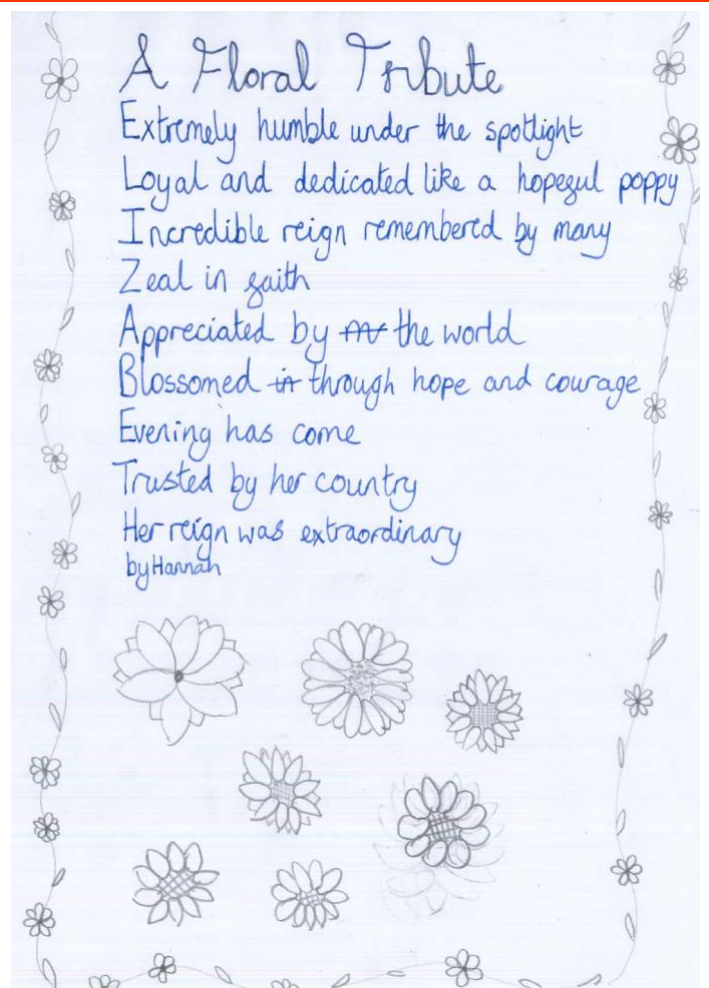 A Floral Tribute
Extremely humble under the spotlight
Loyal and dedicated like a hopeful poppy
Incredible reign remembered by many
Zeal in faith
Appreciated by the world
Blossomed in through hope and courage
Evening has come
Trusted by her country
Her reign was extraordinary
by Hannah